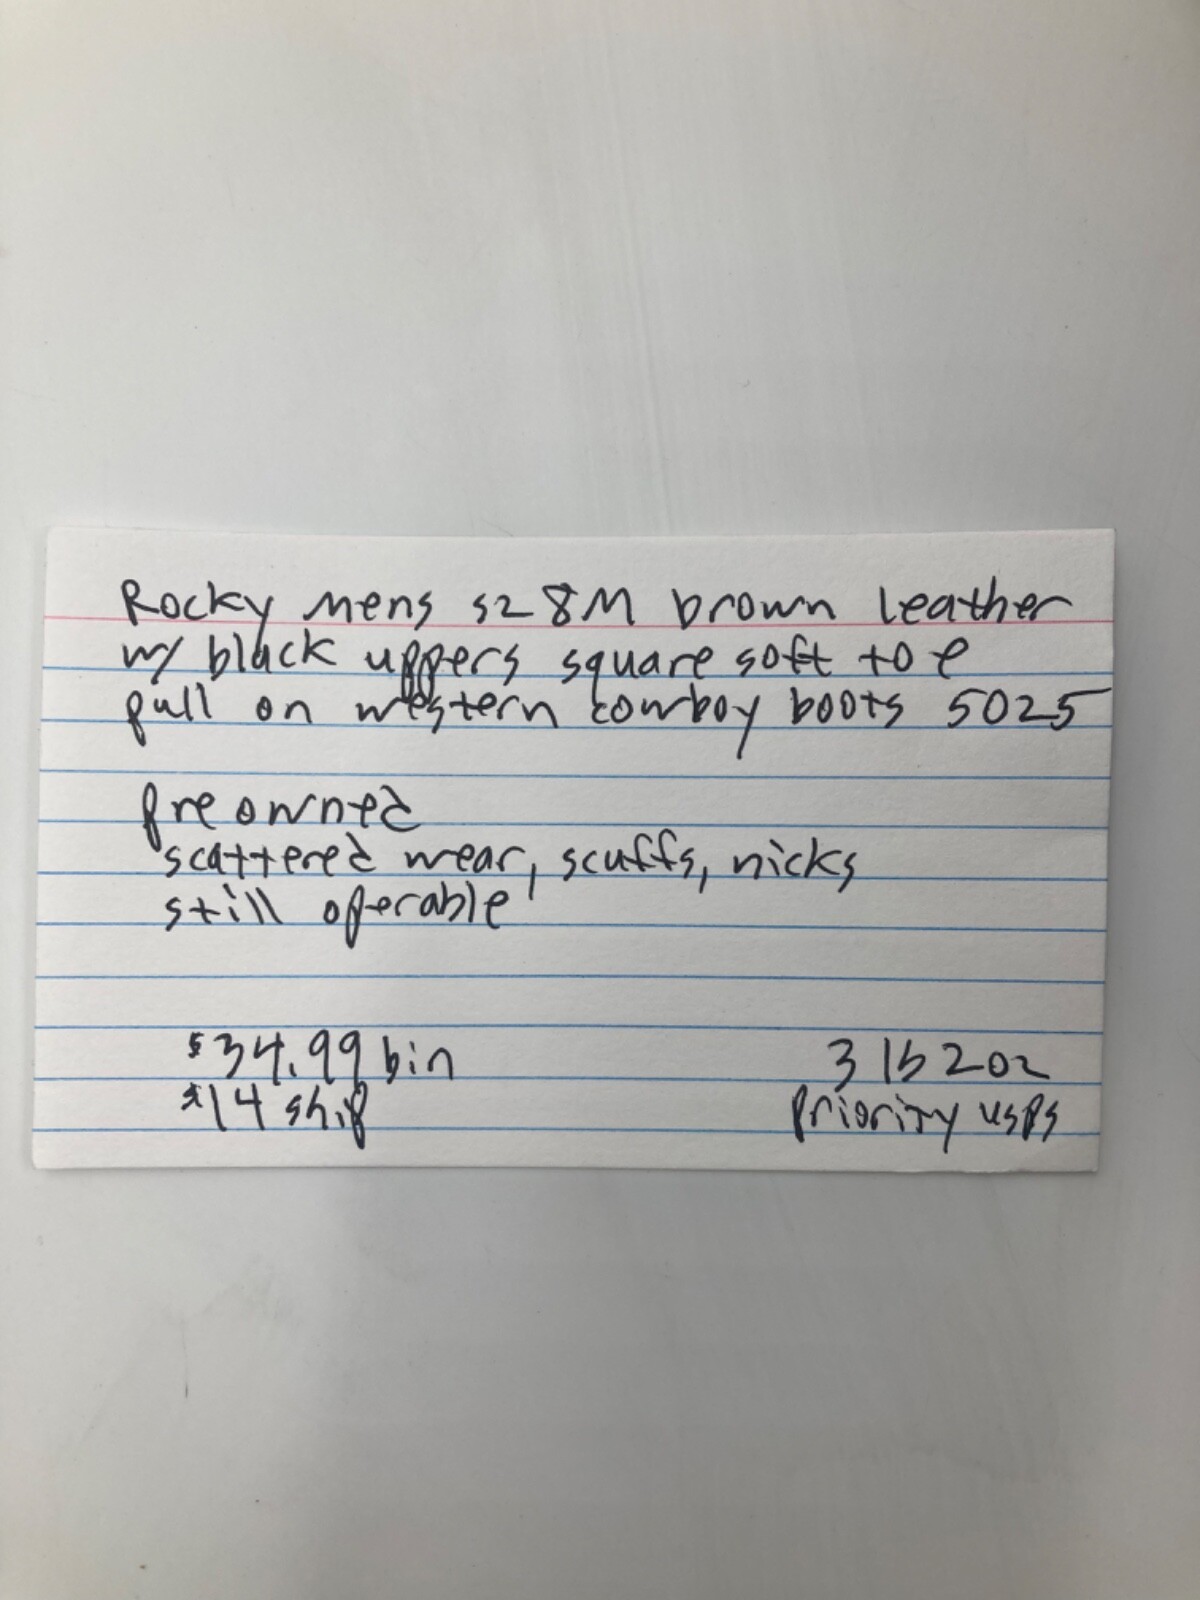 Rocky mens sz 8M brown leather
w/ black uppers square soft toe
pull on western cowboy boots 5025
pre owned
scattered wear, scuffs, nicks
still operable
$34.99 bin
$14 ship
3 lb 2oz
priority usps